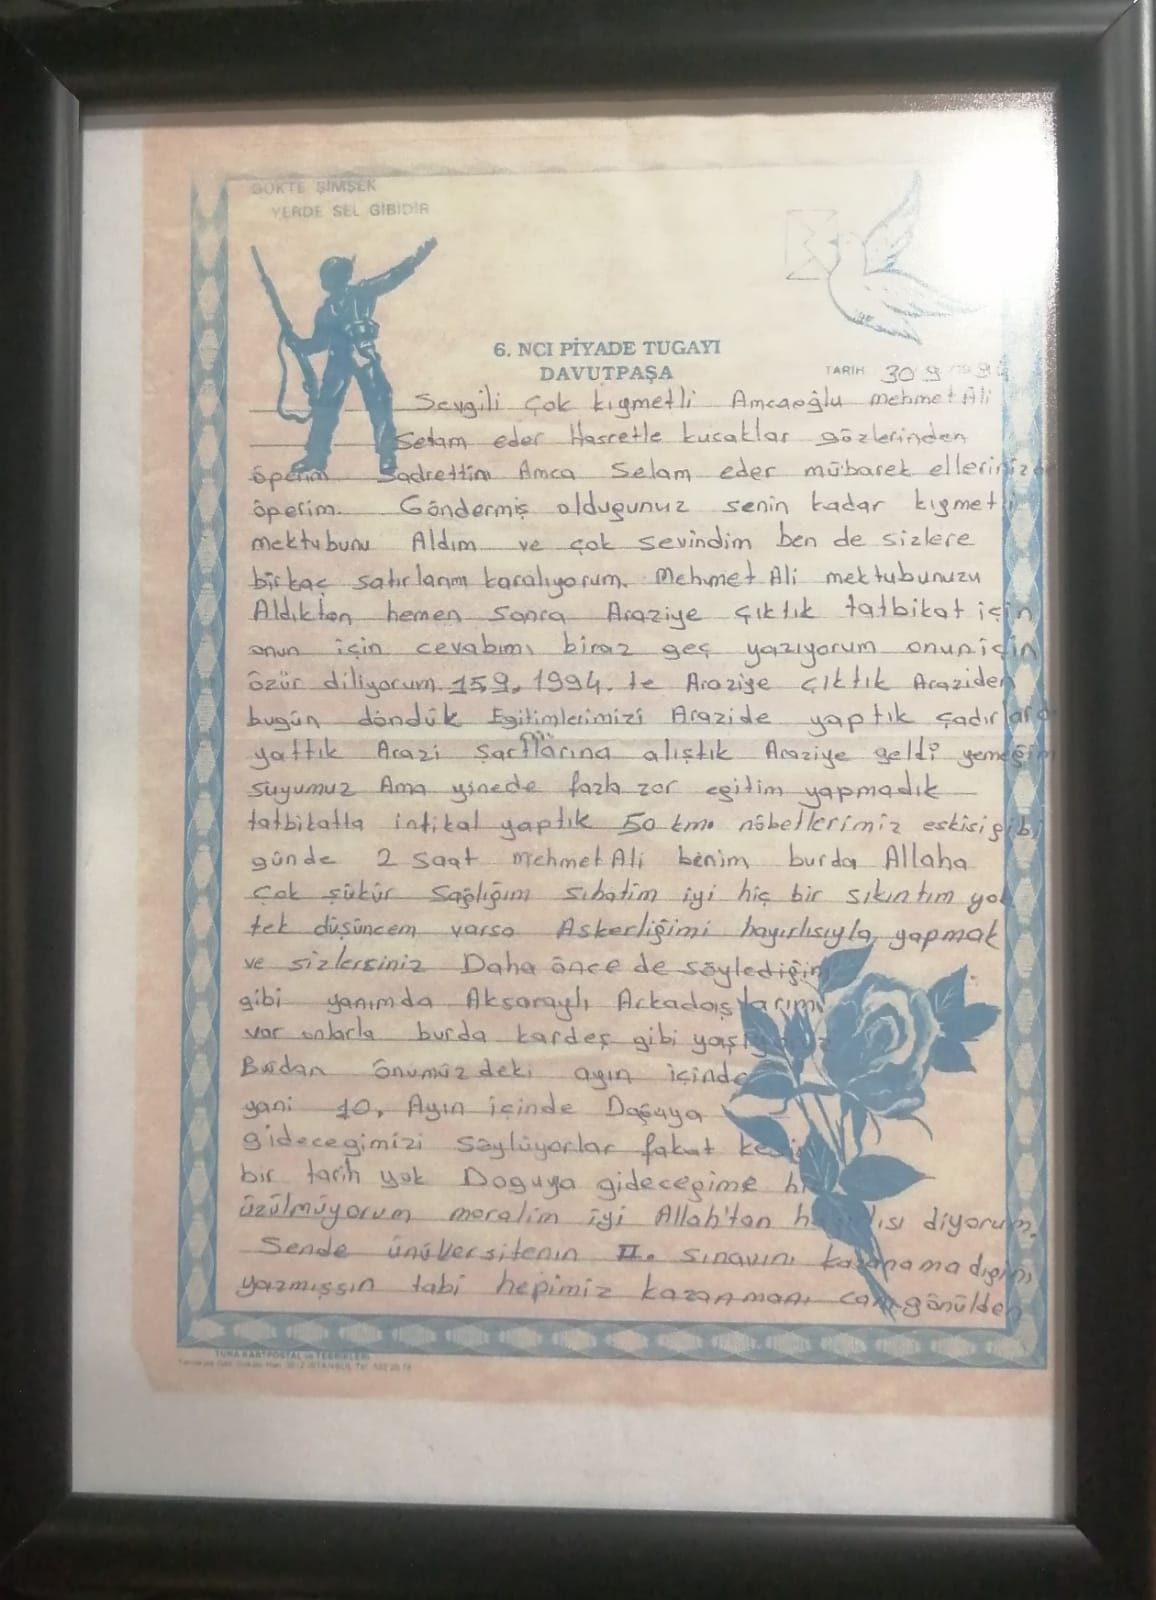 GÖKTE ŞİMŞEK
YERDE SEL GİBİDİR
6. NCI PİYADE TUGAYI
DAVUTPAŞA
TARİH 30 9 199
Sevgili Çok kıymetli Amcaoğlu Mehmet Ali
Selam eder Hasretle kucaklar gözlerinden
öperim Sadrettim Amca Selam eder mübarek ellerinizden
öperim. Göndermiş oldugunuz senin kadar kıymetli
mektubunu Aldım ve çok sevindim ben de sizlere
birkaç satırlarım karalıyorum. Mehmet Ali mektubunuzu
Aldıktan hemen sonra Araziye çıktık tatbikat için
onun için cevabımı biraz geç yazıyorum onun için
özür diliyorum. 15.9.1994. te Araziye çıktık Araziden
bugün döndük Egitimlerimizi Arazide yaptık çadırlarda
yattık Arazi şartlarına alıştık Araziye geldi yemeğim
suyumuz Ama yinede fazla zor egitim yapmadık
tatbikatta intikal yaptık 50 km. nöbetlerimiz eskisi gibi
günde 2 saat Mehmet Ali benim burda Allaha
Çok şükür Sağlığım sıhatim iyi hiç bir sıkıntım yok
tek düşüncem varsa Askerliğimi hayırlısıyla yapmak
ve sizlersiniz Daha önce de söylediğim
gibi yanımda Aksaraylı Arkadaşlarım
var onlarla burda kardeş gibi yaşıyoruz
Burdan önümüzdeki ayın içinde
yani 10. Ayın içinde Doğuya
gidecegimizi söylüyorlar fakat kesin
bir tarih yok Doguya gideceğime hiç
üzülmüyorum moralim iyi Allah'tan hayırlısı diyorum.
Sende ünüversitenin II. sınavını kazanamadıgını
yazmışsın tabi hepimiz kazanmanı can gönülden
TUNA KARTPOSTAL ve TEBRİKLERİ